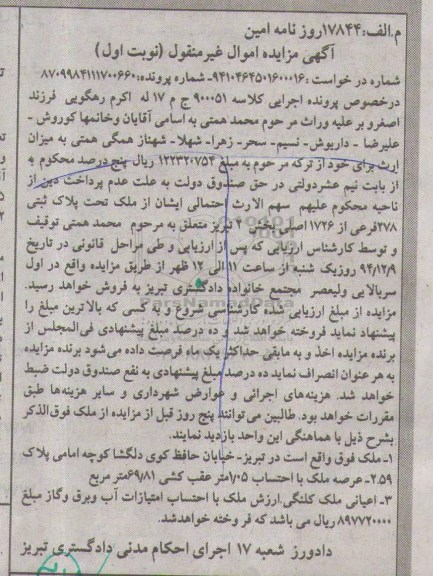 م.الف:۱۷۸۴۴روز نامه امین
آگهی مزایده اموال غیرمنقول (نوبت اول)
شماره در خواست :۹۴۱۰۴۶۴۵۰۱۶۰۰۰۱۶-شماره پرونده:۸۷۰۹۹۸۴۱۱۱۷۰۰۶۶۰
درخصوص پرونده اجرایی کلاسه ۹۰۰۰۵۱ ج م ۱۷ له  اکرم رهگویی  فرزند
اصغرو بر علیه وراث مر حوم محمد همتی به اسامی آقایان وخانمها کوروش -
علیرضا - داریوش - نسیم- سحر- زهرا- شهلا- شهناز همگی همتی به میزان
ارث برای خود از ترکه مر حوم به مبلغ ۱۲۲۳۲۰۷۵۴ ریال پنج درصد محکوم به
از بابت نیم عشردولتی در حق صندوق دولت به علت عدم پرداخت دین از
ناحیه محکوم علیهم  سهم الارث احتمالی ایشان از ملک تحت پلاک ثبتی
۲۷۸فرعی از ۱۷۲۶اصلی بخش ۴ تبریز متعلق به مرحوم  محمد همتی توقیف
و توسط کارشناس ارزیابی که پس از ارزیابی و طی مراحل  قانونی در تاریخ
۹۴/۱۲/۹ روزیک شنبه از ساعت ۱۱ الی ۱۲ ظهر از طریق مزایده واقع در اول
سربالایی ولیعصر  مجتمع خانواده دادگستری تبریز به فروش خواهد رسید.
مزایده از مبلغ ارزیابی شده کارشناسی شروع و به کسی که بالاترین مبلغ را
پیشنهاد نماید فروخته خواهد شد و ده درصد مبلغ پیشنهادی فی‌المجلس از
برنده مزایده اخذ و به مابقی حداکثر یک ماه فرصت داده می‌شود برنده مزایده
به هر عنوان انصراف نماید ده درصد مبلغ پیشنهادی به نفع صندوق دولت ضبط
خواهد شد. هزینه‌های اجرائی و عوارض شهرداری و سایر هزینه‌ها طبق
مقررات خواهد بود. طالبین می‌توانند پنج روز قبل از مزایده از ملک فوق‌الذکر
بشرح ذیل با هماهنگی این واحد بازدید نمایند.
۱-ملک فوق واقع است در تبریز- خیابان حافظ کوی دلگشا کوچه امامی پلاک
۲۵۹- عرصه ملک با احتساب ۱/۰۵متر عقب کشی ۶۹/۸۱متر مربع
۳- اعیانی ملک کلنگی.ارزش ملک با احتساب امتیازات آب وبرق وگاز مبلغ
۸۹۷۷۲۰۰۰۰ ریال می باشد که فر وخته خواهدشد.
دادورز شعبه ۱۷ اجرای احکام مدنی دادگستری تبریز
ParsNamadData